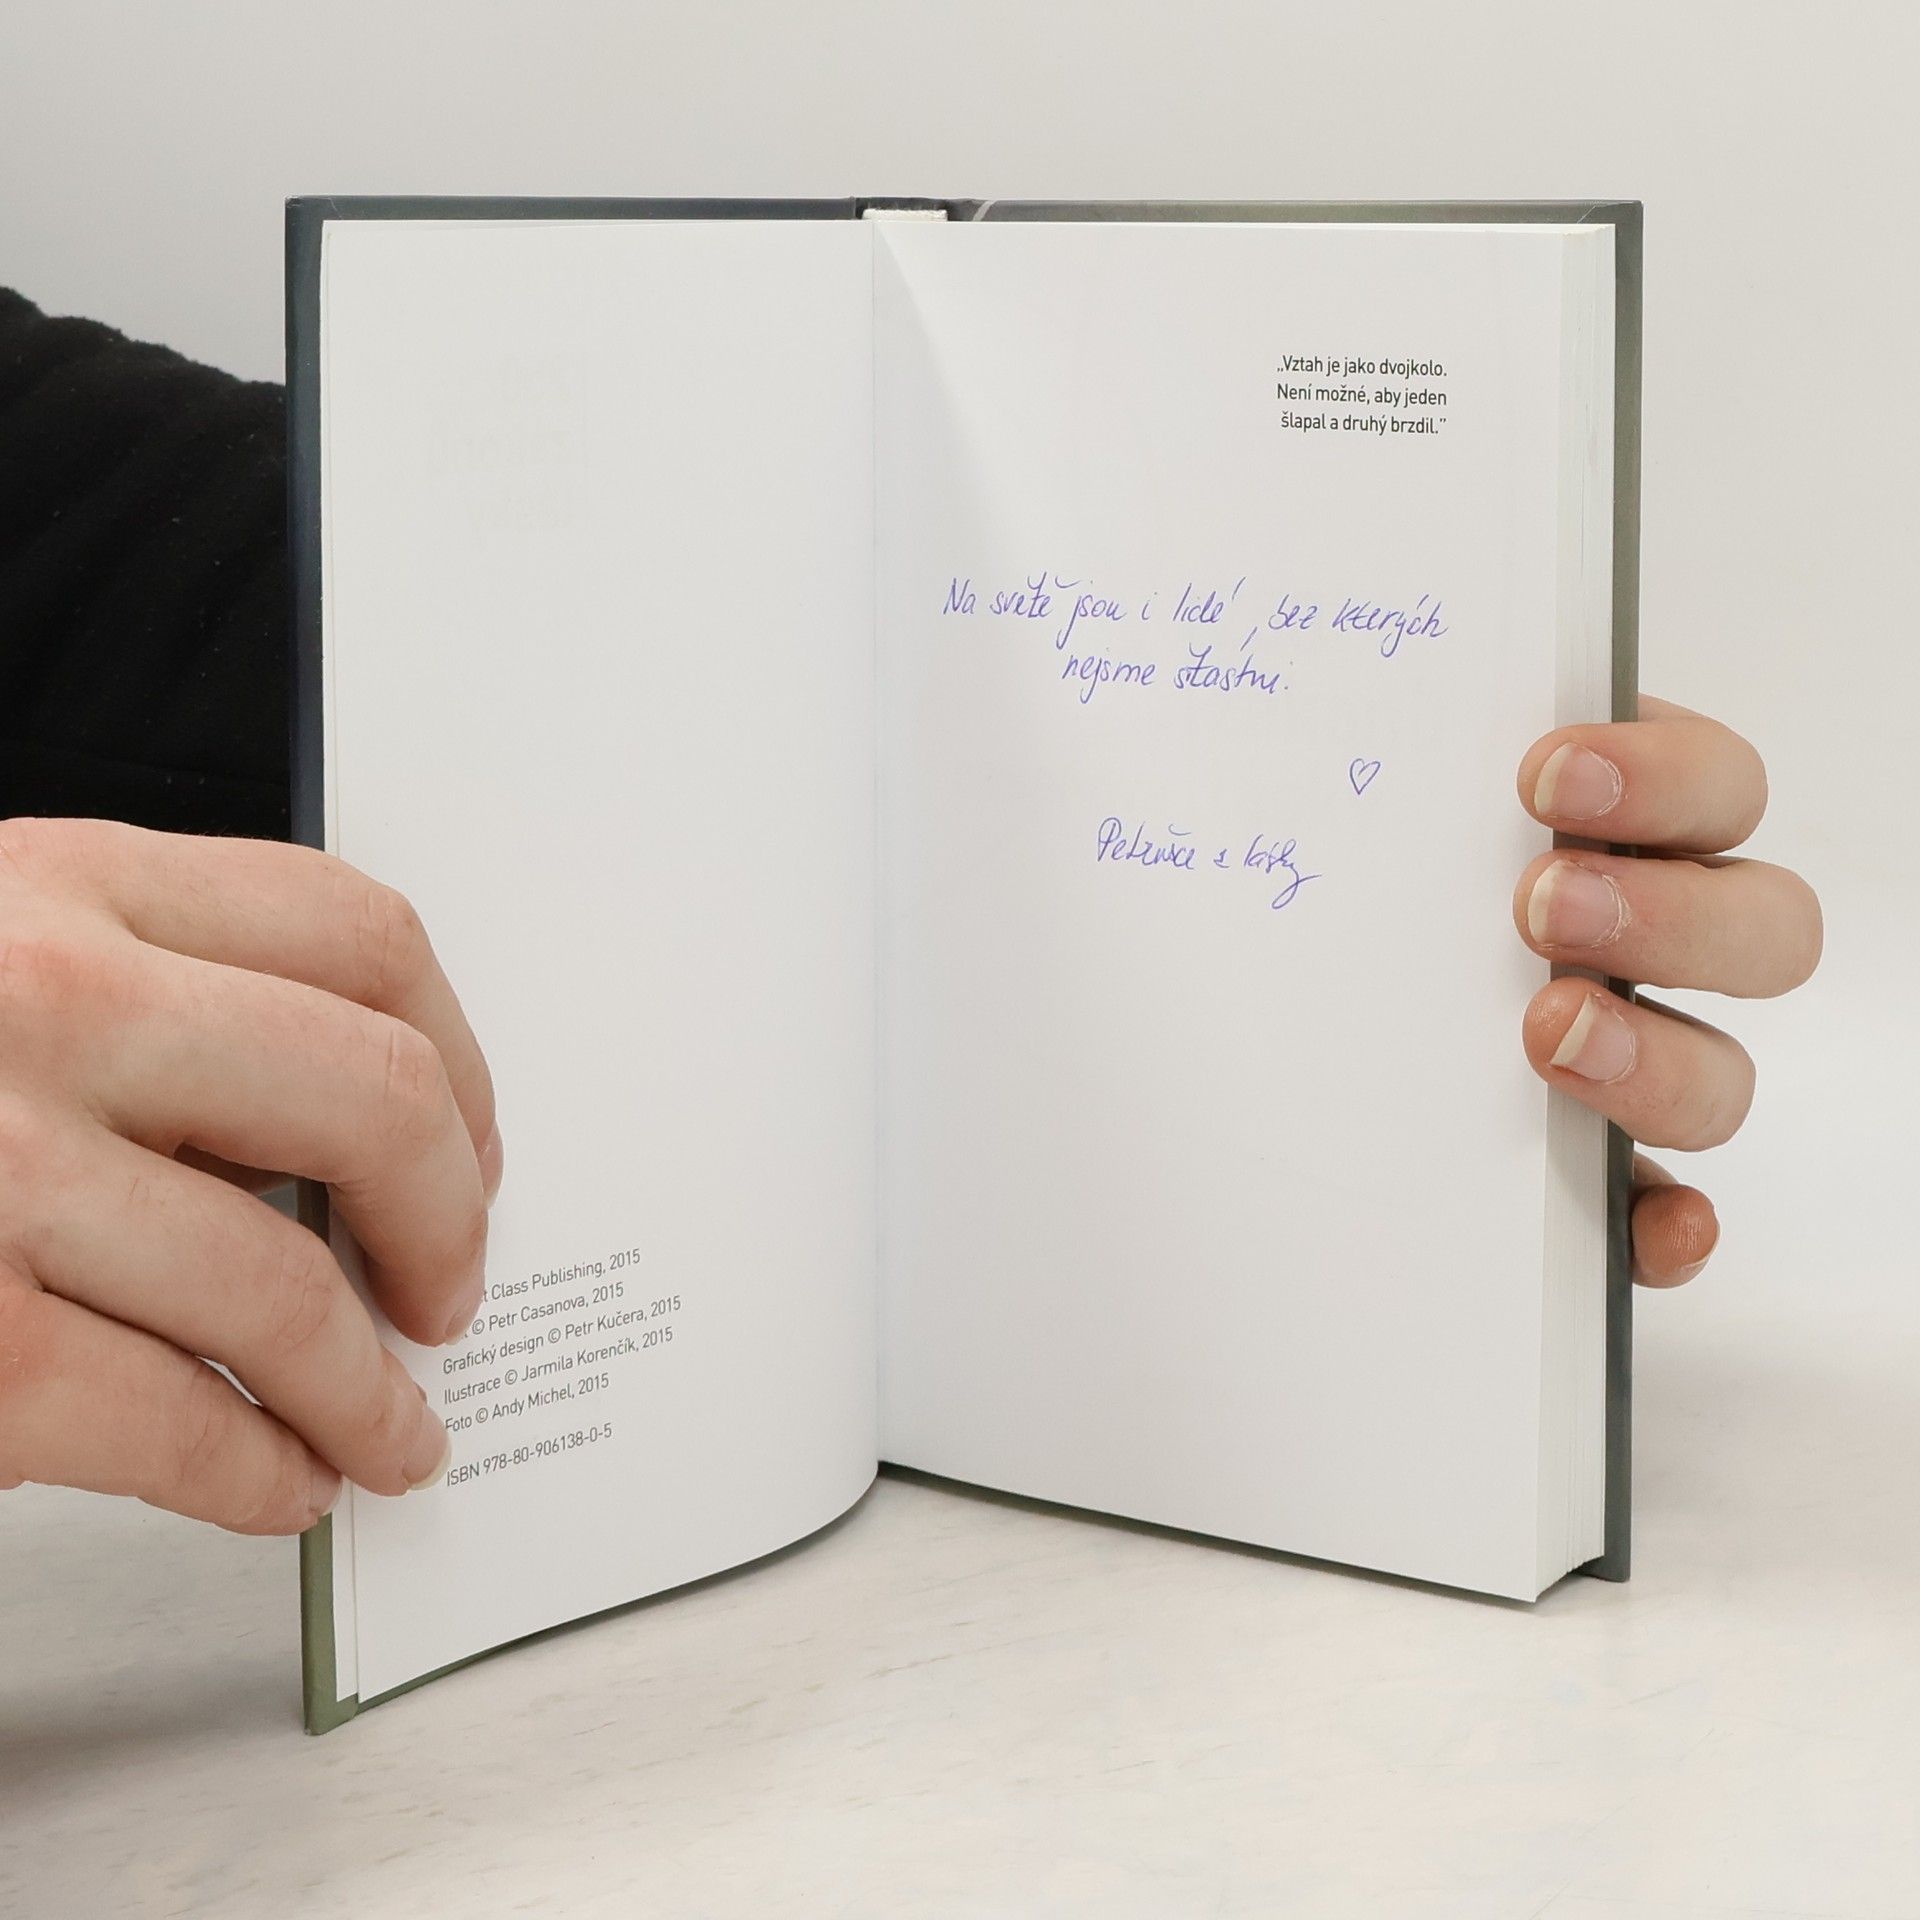 Class Publishing, 2015
© Petr Casanova, 2015
Grafický design © Petr Kučera, 2015
Ilustrace © Jarmila Korenčík, 2015
Foto © Andy Michel, 2015
ISBN 978-80-906138-0-5
„Vztah je jako dvojkolo.
Není možné, aby jeden
šlapal a druhý brzdil.”
Na světě jsou i lidé, bez kterých
nejsme šťastni.
Petrušce z lásky